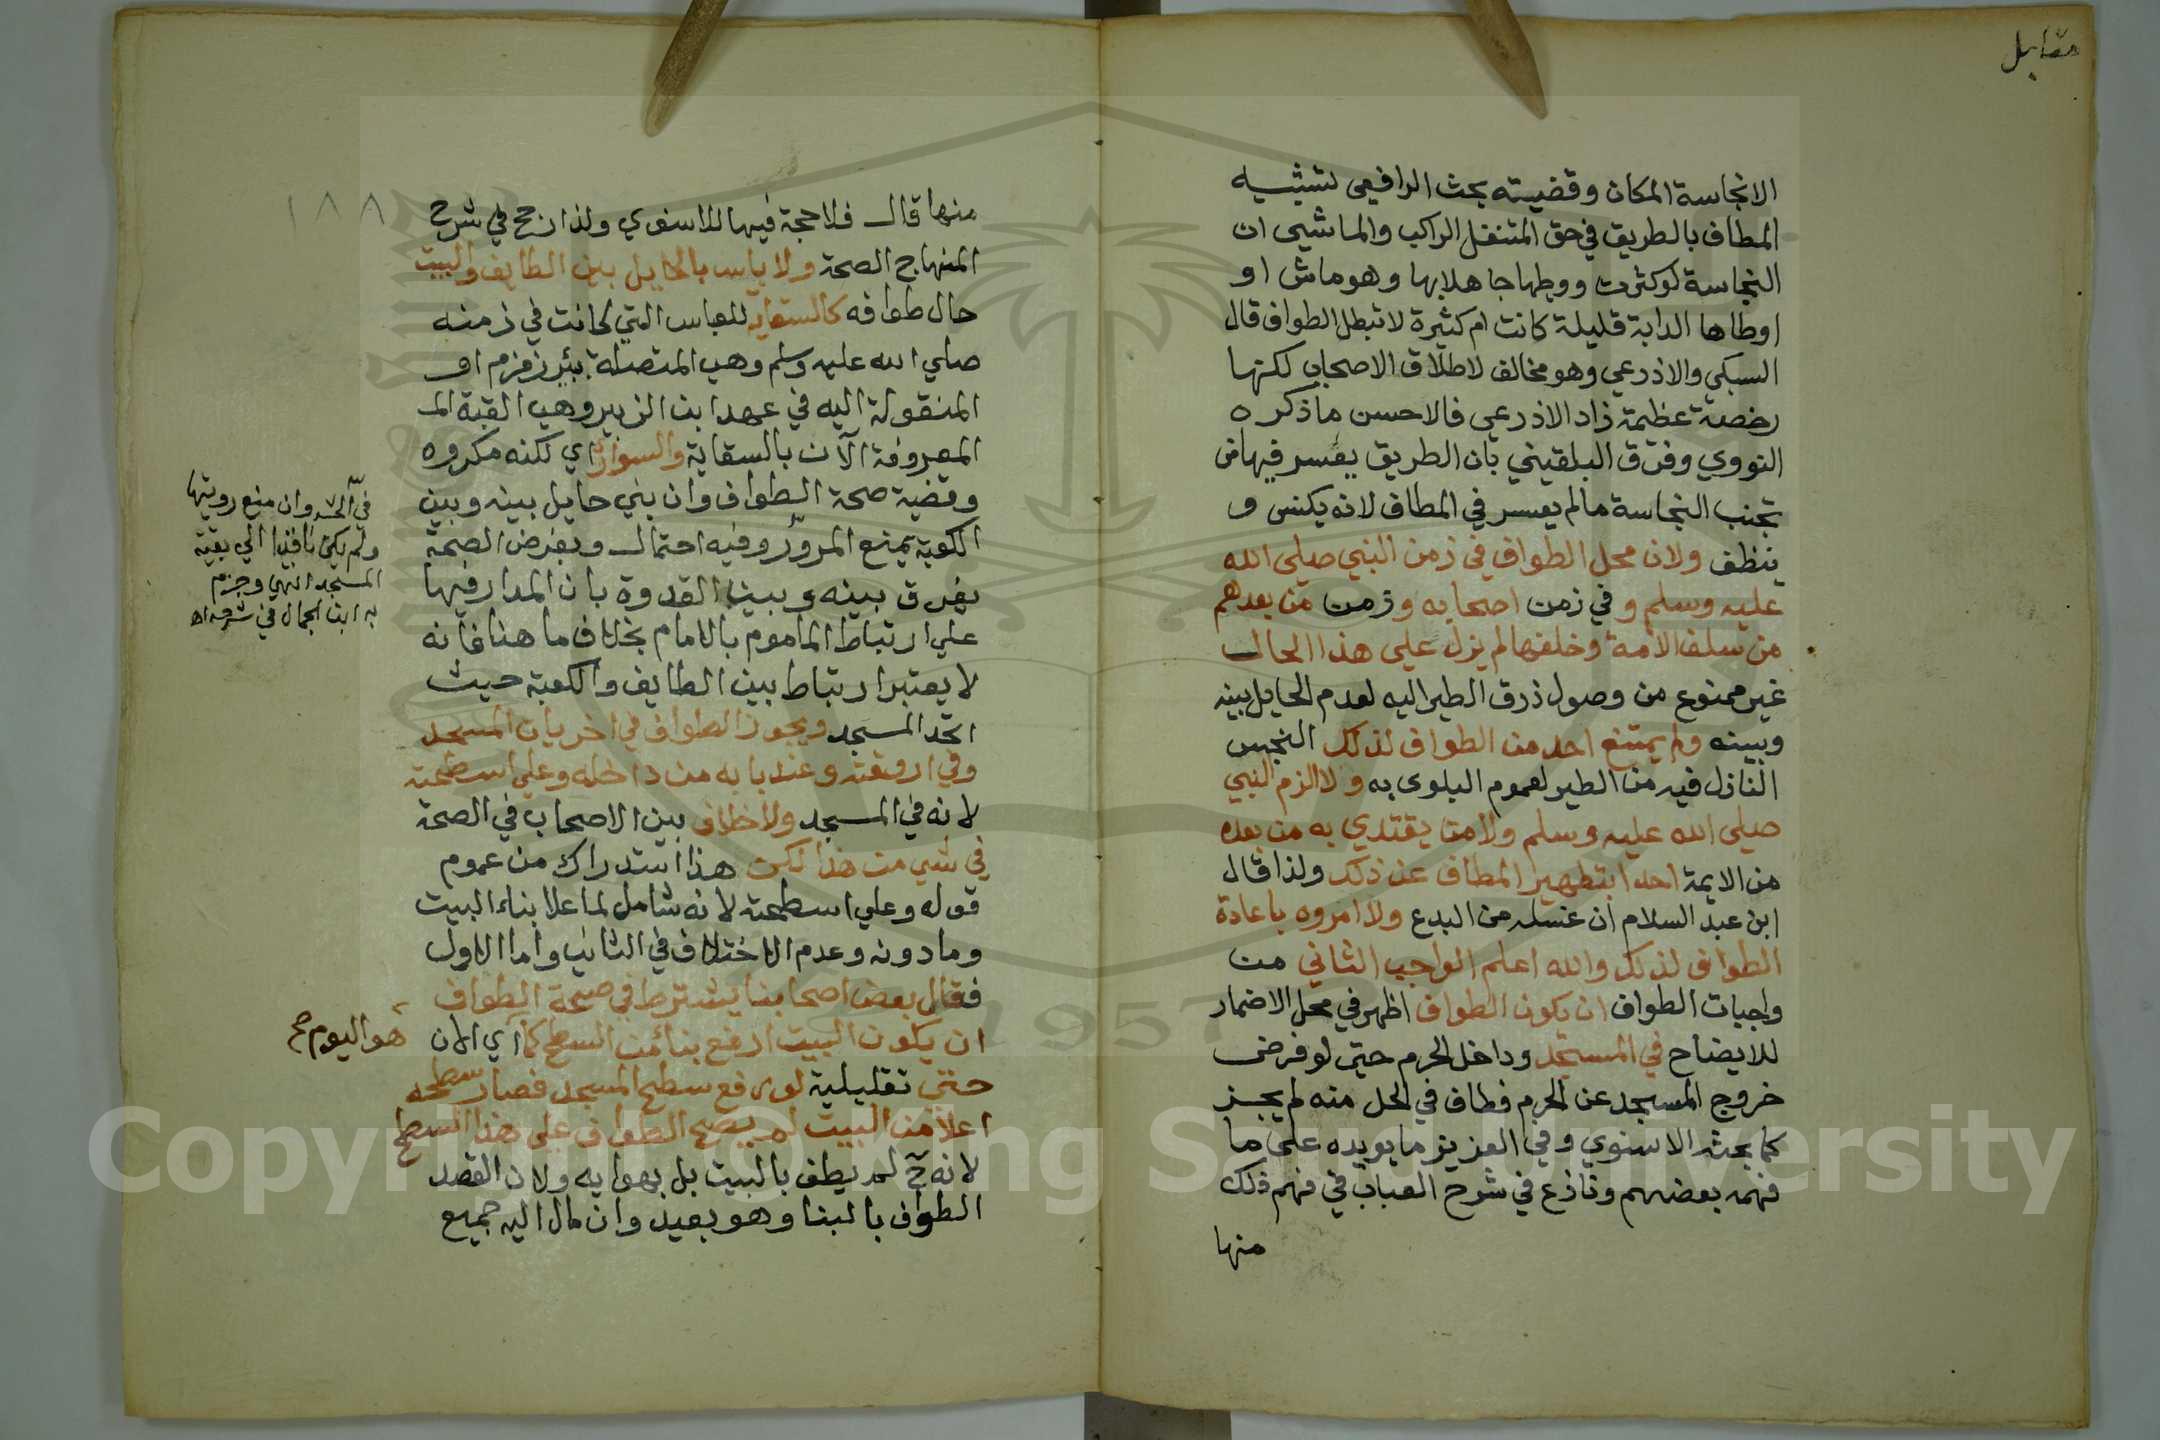 مقابل
الا نجاسة المكان وقضيته بحث الرافعي تشبيه
المطاف بالطريق في حق المتنفل الراكب والماشي ان
النجاسة لو كثرت ووطها جاهلا بها وهو ماش او
اوطاها الدابة قليلة كانت ام كثيرة لا تبطل الطواف قال
السبكي والاذرعي وهو مخالف لاطلاق الاصحاب لكنها
رخصة عظيمة زاد الاذرعي فالاحسن ما ذكره
النووي وفرق البلقيني بان الطريق يعسر فيها من
تجنب النجاسة ما لم يعسر في المطاف لانه يكنس و
ينظف ولان محل الطواف في زمن النبي صلي الله
عليه وسلم و في زمن اصحابه وزمن من بعدهم
من سلف الامة وخلفها لم يزل علي هذا الحال
غير ممنوع من وصول ذرق الطير اليه لعدم الحايل بينه
وبينه ولم يمتنع احد من الطواف لذلك النجس
النازل فيه من الطير لعموم البلوي به ولا الزم النبي
صلي الله عليه وسلم ولا من يقتدي به من بعده
من الايمة احدا بتطهير المطاف عن ذلك ولذا قال
ابن عبد السلام ان غسله من البدع ولا امروه باعادة
الطواف لذلك والله اعلم الواجب الثاني من
واجبات الطواف ان يكون الطواف اظهر في محل الاضمار
للايضاح في المسجد وداخل الحرم حتي لو فرض
خروج المسجد عن الحرم فطاف في الحل منه لم يجز
كما بحثه الاسنوي وفي العزيز ما يويده علي ما
فهمه بعضهم ونازع في شرح العباب في فهم ذلك
منها
١٨٨
منها قال فلا حجة فيها للاسنوي ولذا رجح في شرح
المنهاج الصحة ولا باس بالحايل بين الطايف والبيت
حال طوافه كالسقاية للعباس التي كانت في زمنه
صلي الله عليه وسلم وهي المتصلة ببئر زمزم او
المنقولة اليه في عهد ابن الزبير وهي القبة المـ
المعروفة الآن بالسقاية والسواري اي لكنه مكروه
وقضية صحة الطواف وان بني حايل بينه وبين
الكعبة يمنع المرور وفيه احتمال وبفرض الصحة
يفرق بينه وبين القدوة بان المدار فيها
علي ارتباط الماموم بالامام بخلاف ما هنا فانه
لا يعتبر ارتباط بين الطايف والكعبة حيث
اتحد المسجد ويجوز الطواف في اخريات المسجد
وفي اروقته وعند بابه من داخله وعلي اسطحته
لانه في المسجد ولا خلاف بين الاصحاب في الصحة
في شي من هذا لكن هذا استدراك من عموم
قوله وعلي اسطحته لانه شامل لما علا بناء البيت
وما دونه وعدم الاختلاف في الثاني واما الاول
فقال بعض اصحابنا يشترط في صحة الطواف
ان يكون البيت ارفع بنا من السطح كما اي الان هو اليوم صح
حتي تقليلية لو رفع سطح المسجد فصار سطحه
اعلا من البيت لم يصح الطواف علي هذا السطح
لانه ح لم يطف بالبيت بل بهوايه ولان القصد
الطواف بالبنا وهو بعيد وان مال اليه جميع
وان منع رويتها
ولم يكن نافذا الي بقية
المسجد انتهي وجزم
به ابن الجمال في شرحه اه
1957
Copyright © King Saud University